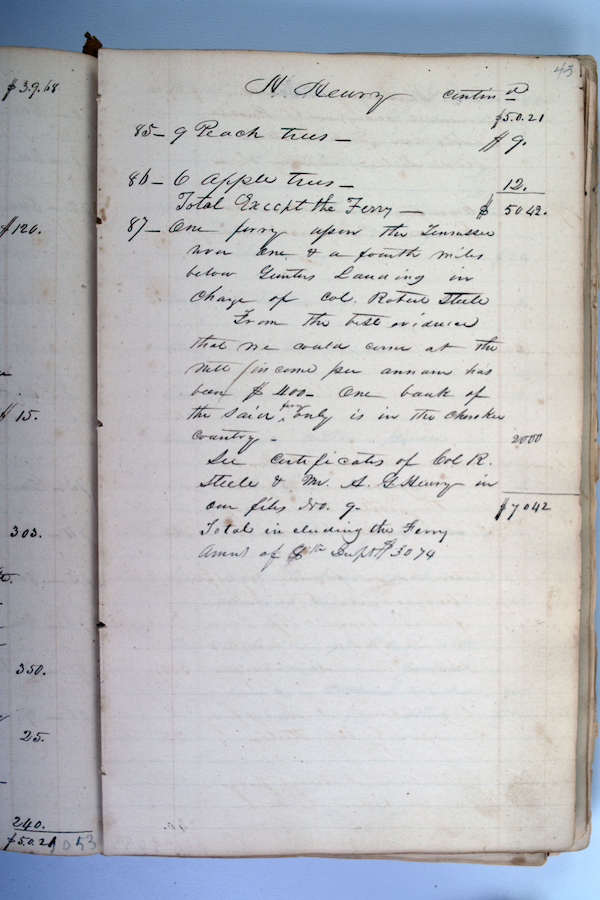 $3.9.68
$120.
$15.
303.
350.
25.
240.
$5.0.21
43
H. Henry contind
$5.0.21
85 - 9 Peach trees - $9.
86 - 6 Apple trees - 12.
Total Except the Ferry - $5042.
87 - One ferry upon the Tennessee
river one & a fourth miles
below Gunters Landing in
charge of Col. Robert Steele
From the best evidence
that we could come at the
nett income per annum has
been $400 - One bank of
the said ferry only is in the Cherokee
country - 2000
See certificates of Col R.
Steele & Mr. S. Henry in
our files No. 9. $7042
Total in cluding the Ferry
Amnt of 8th $5074